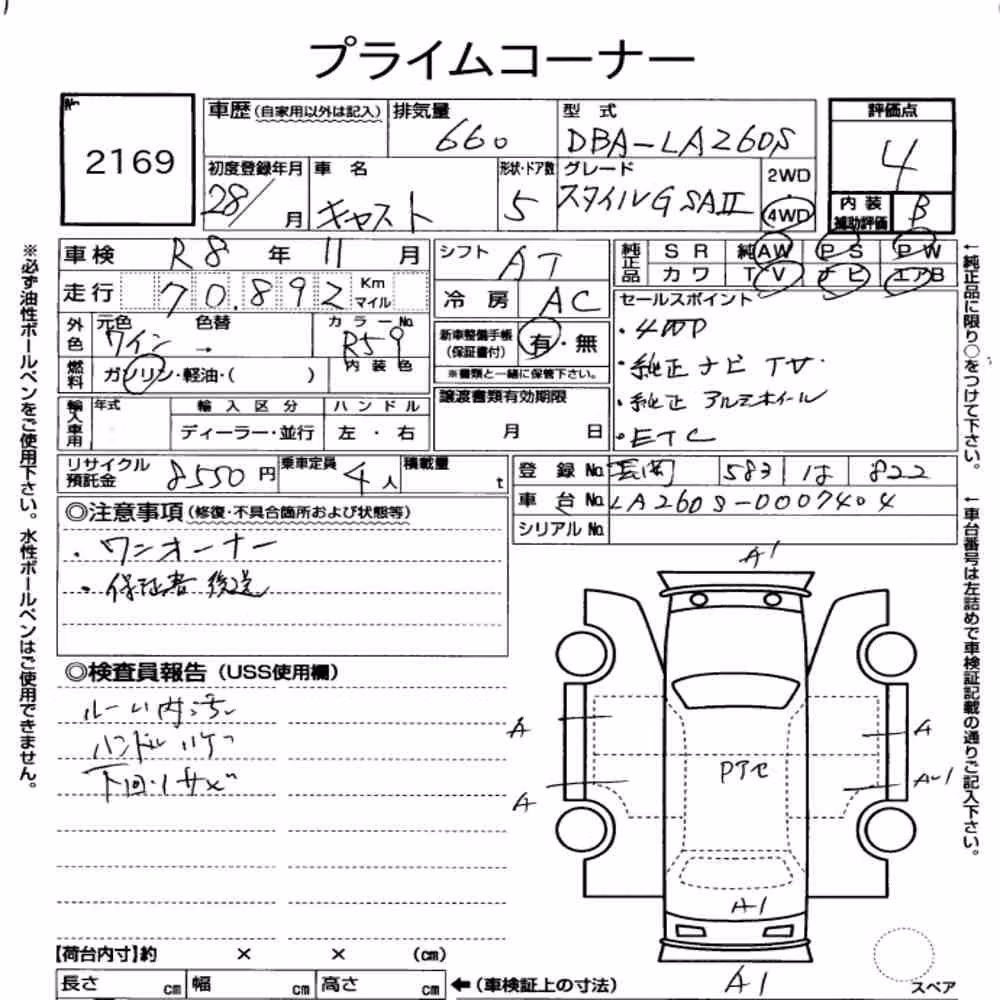 プライムコーナー
No.
2169
車歴 (自家用以外は記入) 排気量 660
型式 DBA-LA260S
評価点 4
初度登録年月 28/ 月
車名 キャスト
形状・ドア数 5
グレード スタイルG SAII
2WD ・ 4WD
内装補助評価 B
車検 R8年 11月
シフト AT
純正品 SR 純AW PS PW
カワ TV ナビ エアB
走行 70,892 Km マイル
冷房 AC
セールスポイント
・4WD
・純正ナビ TV・
・純正アルミホイール
・ETC
外色 元色 ワイン → 色替
カラーNo. R59
内装色
新車整備手帳 (保証書付) 有・無
※書類と一緒に保管下さい。
燃料 ガソリン・軽油・( )
輸入車用 年式 輸入区分 ハンドル
ディーラー・並行 左・右
譲渡書類有効期限
月 日
リサイクル預託金 8550円
乗車定員 4人
積載量 t
登録No. 長岡 583 は 822
車台No. LA260S-0007404
シリアルNo.
◎注意事項 (修復・不具合箇所および状態等)
・ワンオーナー
・保証書後送
◎検査員報告 (USS使用欄)
ルーム内汚レ
ハンドルハゲ
下回りサビ
A1
A
A
A
A-1
Pアセ
A1
A1
スペア
【荷台内寸】約 × × (cm)
長さ cm 幅 cm 高さ cm ←(車検証上の寸法)
※必ず油性ボールペンをご使用下さい。水性ボールペンはご使用できません。
←純正品に限り○をつけて下さい。
←車台番号は左詰めで車検証記載の通りご記入下さい。